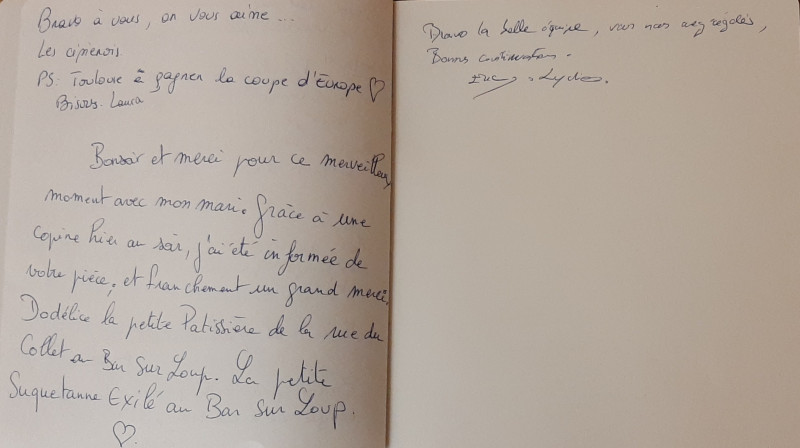 Bravo à vous, on vous aime ...
Les cipierois.
PS: Toulouse à gagner la coupe d'Europe ♡
Bisous. Laura
Bonsoir et merci pour ce merveilleux
moment avec mon mari. Grâce à une
copine hier au soir, j'ai été informée de
votre pièce, et franchement un grand merci.
Dodélice la petite Patissière de la rue du
Collet au Bar sur Loup. La petite
Suquetanne Exilé au Bar sur Loup.
♡.
Bravo la belle équipe, vous nous avez régalés,
Bonnes continuation.